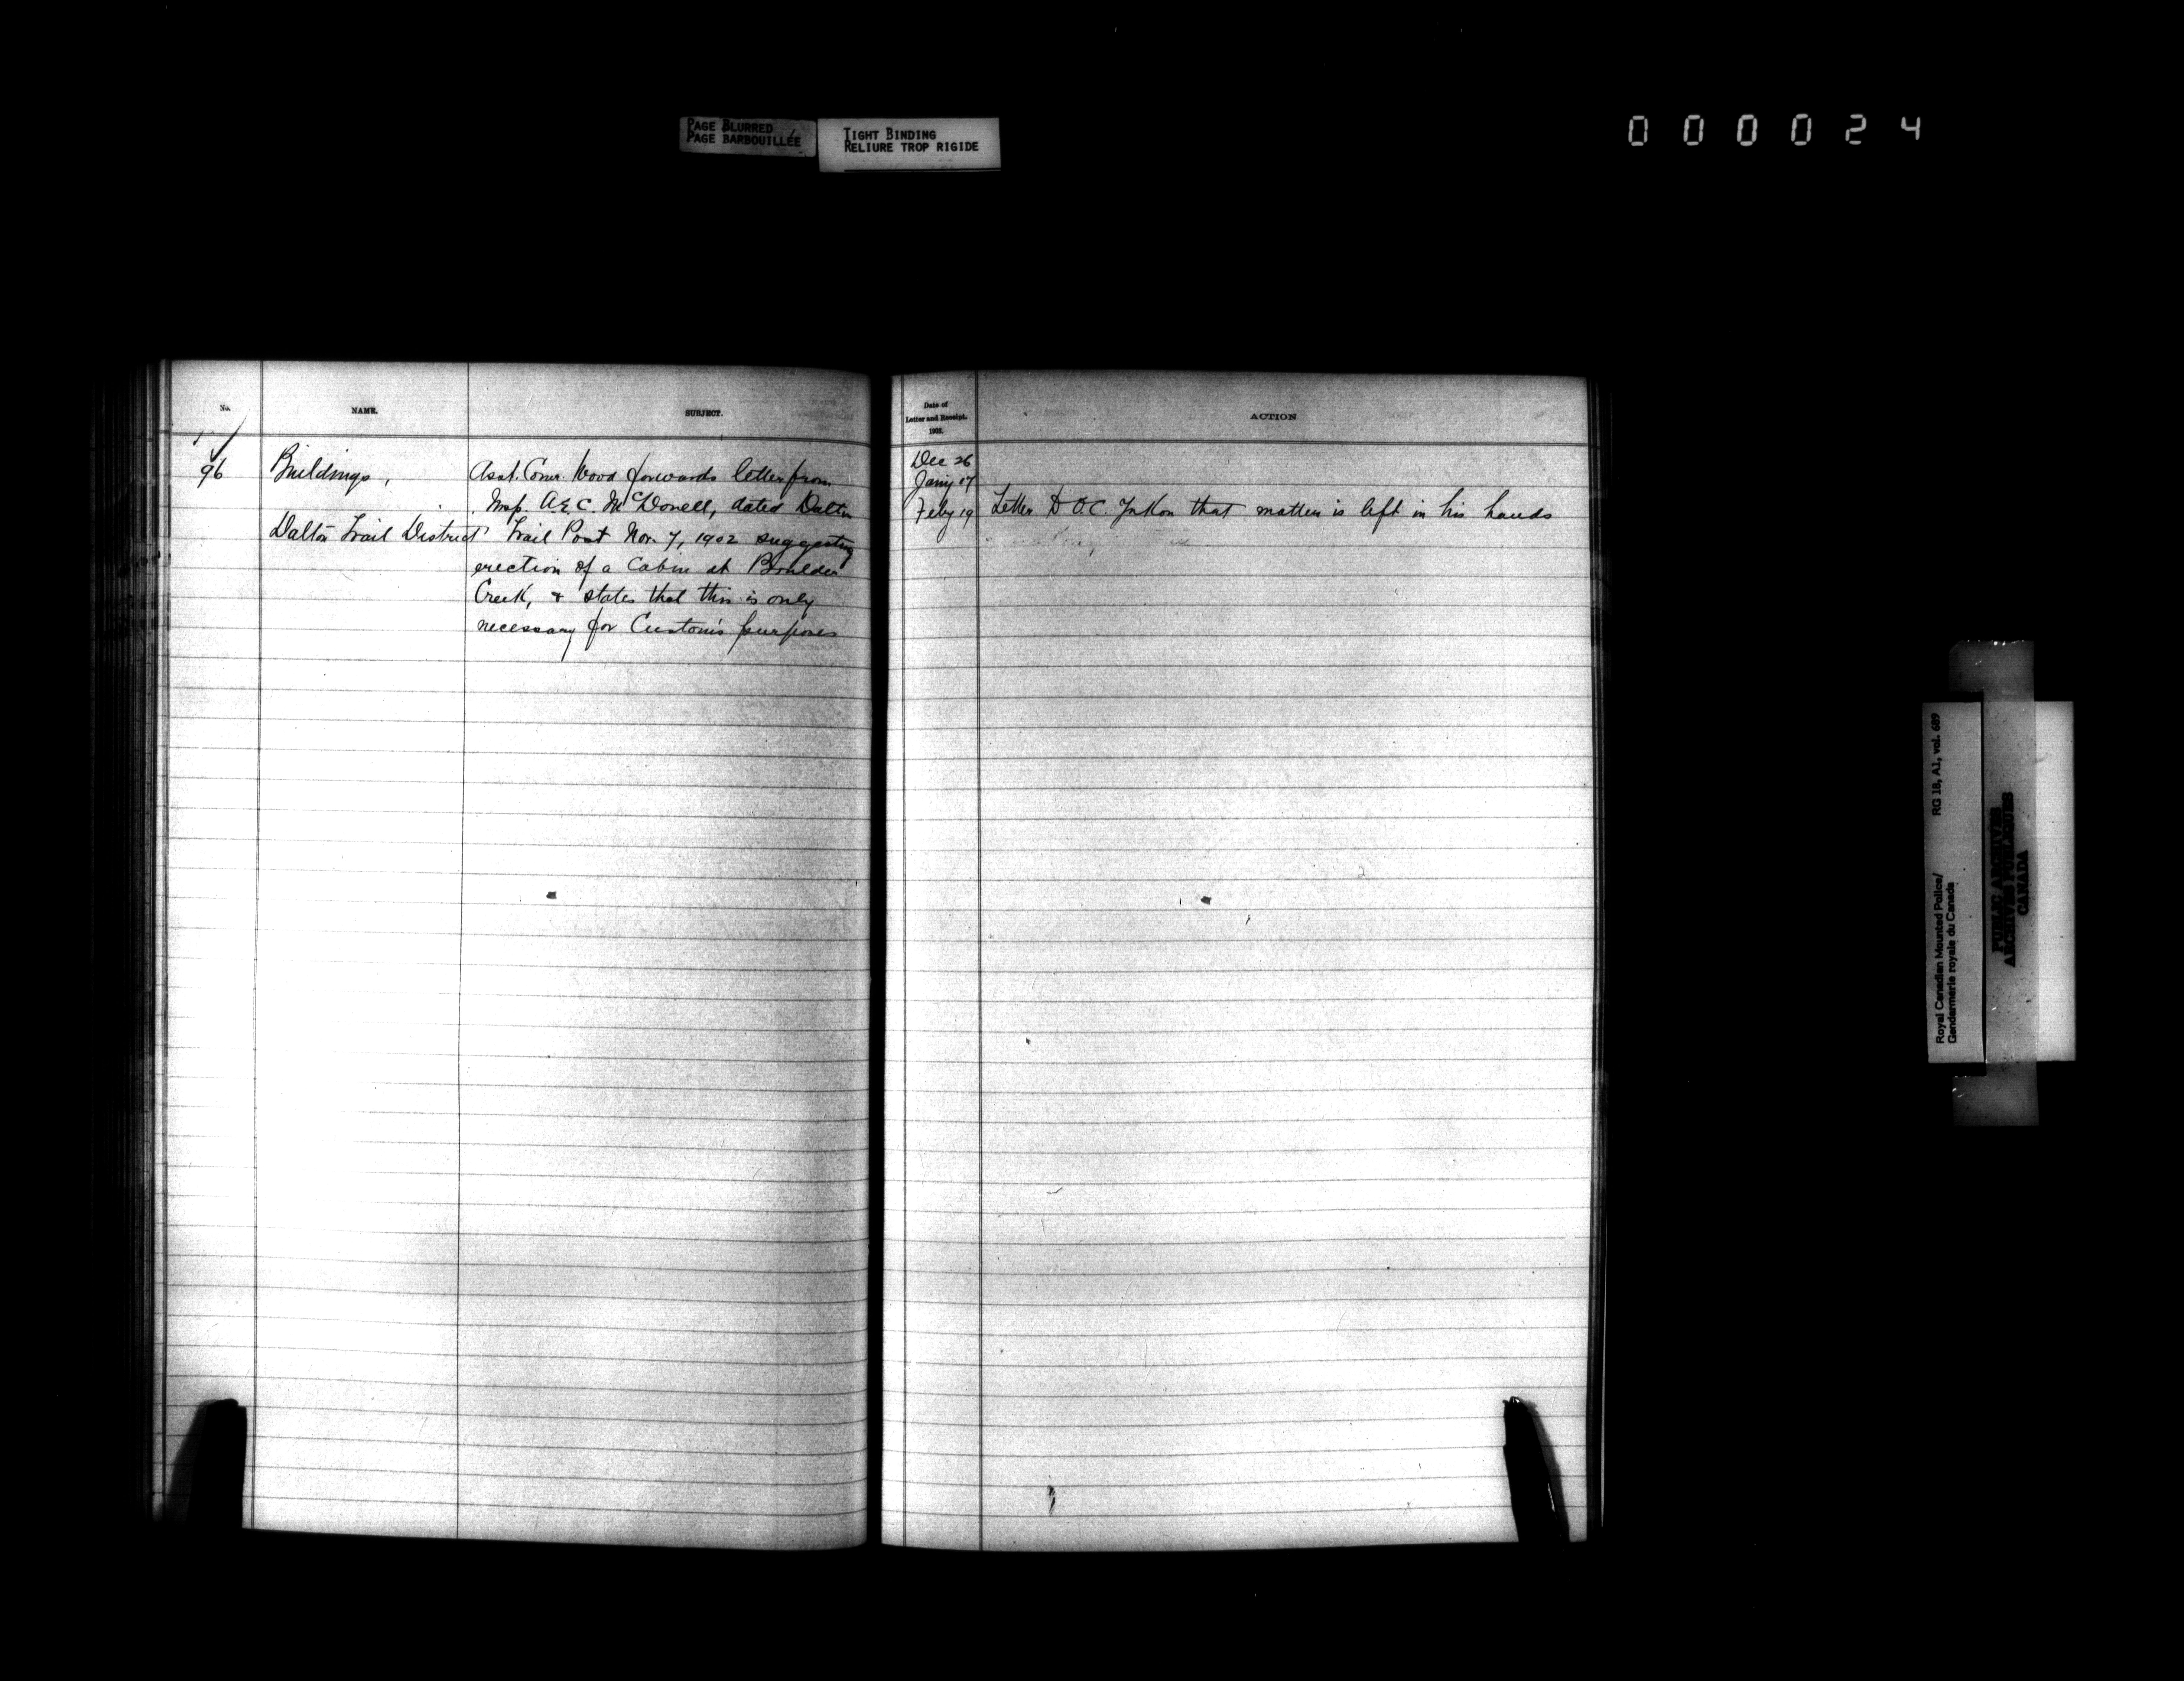 PAGE BLURRED
PAGE BARBOUILLÉE
TIGHT BINDING
RELIURE TROP RIGIDE
000024
No.
NAME.
SUBJECT.
96
Buildings,
Dalton Trail District
Asst. Comr. Wood forwards letter from
Insp. A.E.C. McDonell, dated Dalton
Trail Post Nov. 7, 1902 suggesting
erection of a Cabin at Boulder
Creek, & states that this is only
necessary for Custom's purposes
Date of
Letter and Receipt.
1903.
ACTION
Dec 26
Jany 17
Feby 19 Letter to O.C. Yukon that matter is left in his hands
Royal Canadian Mounted Police/
Gendarmerie royale du Canada
RG 18, A1, vol. 689
PUBLIC ARCHIVES
ARCHIVES PUBLIQUES
CANADA